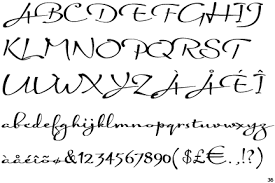 ABCDEFGHIJ
KLMNOPQRST
UVWXYZÀÅÉÎ
abcdefghijklmnopqrstuvwxyz
àåéîõø&1234567890($£€.,!?)
36